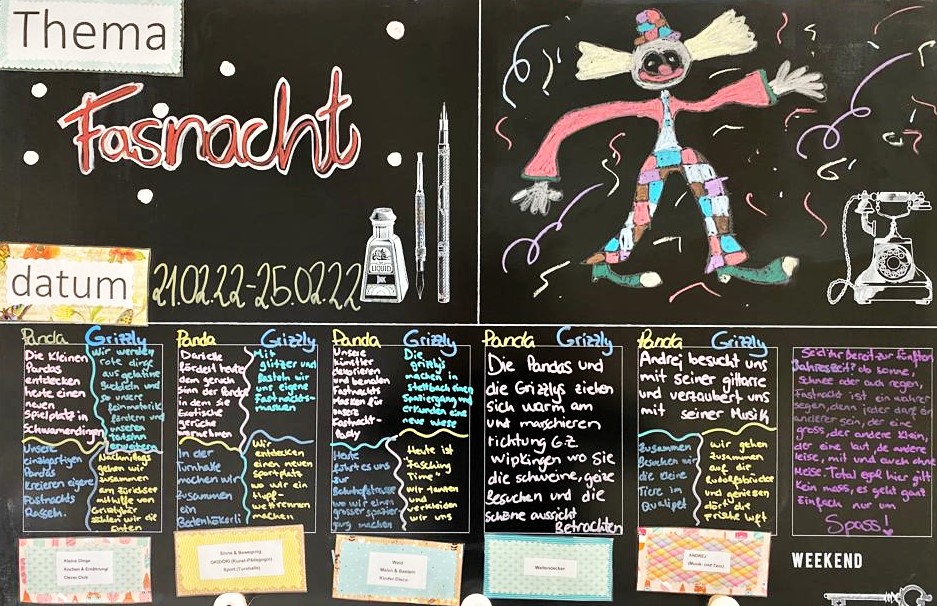 Thema
Fasnacht
LIQUID
INK
datum
21.02.22-25.02.22
Panda
Die Kleinen
Pandas
entdecken
heute einen
neuen
Spielplatz in
Schwamendingen
Grizzly
Wir werden
rote dinge
aus gelatine
und
so unsere
feinmotorik
fördern und
unseren
Unsere
einzigartigen
Pandas
kreieren eigene
Fastnachts
Rasseln.
Nachmittags
gehen wir
zusammen
am Zürisee
mithilfe von
Grizzlybär
zählen wir die
Enten
Panda
Danielle
fördert heute
den geruch
sinn der
in dem sie
Exotische
gerüche
wahrnehmen
Grizzly
Mit
glitzer und
basteln wir
uns eigene
Fastnachts-
masken
In der
Turnhalle
machen wir
zusammen
ein
Bodenhäkerli
Wir
entdecken
einen neuen
Sportplatz
wo wir ein
Hupf-
wettrennen
machen
Panda
Unsere
künstler
dekorieren
und bemalen
Fastnacht
Masken für
unsere
Fastnacht-
Party
Grizzly
Die
grizzlys
machen in
Stettbach einen
Spaziergang und
erkunden eine
neue wiese
Heute
führt es uns
zur
Bahnhofstrasse
wo wir ein
grosser spazier
gang machen
Heute ist
Fasching
Time
Wir tanzen
und
verkleiden
wir uns
Panda Grizzly
Die Pandas und
die Grizzlys ziehen
sich warm an
und marschieren
richtung GZ
wipkingen wo Sie
die schweine, geiss
Besuchen und die
schöne aussicht
Betrachten
Panda Grizzly
Andrej besucht uns
mit seiner gittarre
und verzaubert uns
mit seiner Musik
Zusammen
Besuchen wir
die kleine
Tiere im
Qualipet
wir gehen
zusammen
auf die
Rudolfsbrücke
und geniessen
dort die
frische luft
Seid ihr Bereit zur fünften
Jahreszeit? ob sonne,
schnee oder auch regen,
Fastnacht ist ein wahrer
segen, denn jeder darf ein
anderer sein, der eine
gross, der andere klein,
der eine laut, de andere
leise, mit und auch ohne
Meise. Total egal hier gilt
kein muss, es geht ganz
einfach nur um
Spass!
Kleine Dinge
Kochen & Ernährung/
Clever Club
Sinne & Bewegung
OKIDOKI (Kunst-Pädagogin)
Sport (Turnhalle)
Wald
Malen & Basteln
Kinder-Disco
Weltendecker
ANDREJ
(Musik und Tanz)
WEEKEND